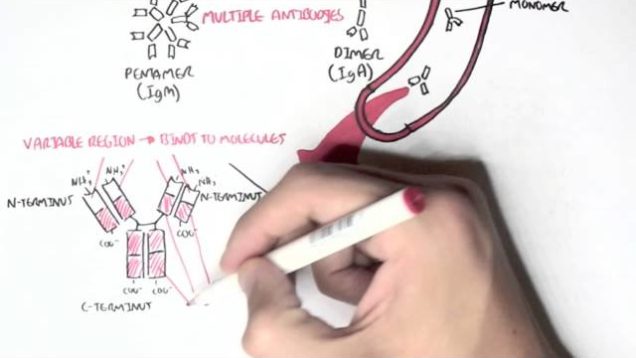 MONOMER
MULTIPLE ANTIBODIES
DIMER
(IgA)
PENTAMER
(IgM)
VARIABLE REGION → BINDS TO MOLECULES
NH₃⁺ NH₃⁺ NH₃⁺
NH₃⁺
N-TERMINUS N-TERMINUS
COO⁻ COO⁻
COO⁻ COO⁻
C-TERMINUS